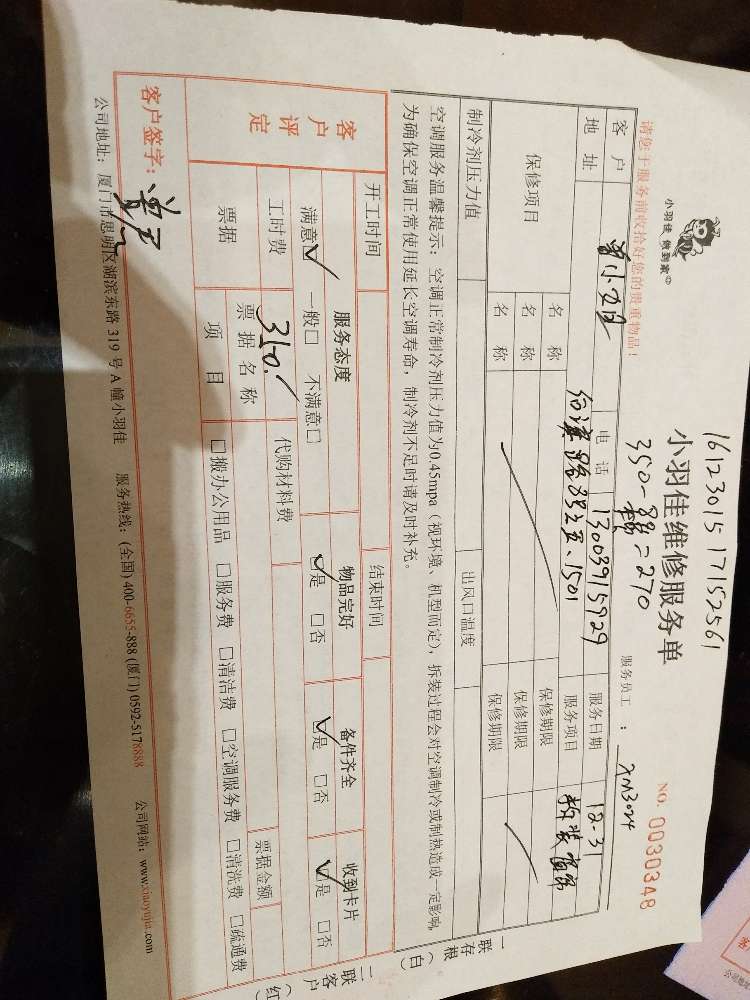 16123015 17152561
小羽佳 做到家
小羽佳维修服务单
350-80=270
NO. 0030348
请您于服务前收拾好您的贵重物品!
服务员工: XM3024
客户 电话 13003915929 服务日期 12-31
地址 1501 服务项目 拆装
保修项目 名称 保修期限
名称 保修期限
名称 保修期限
制冷剂压力值 出风口温度
空调服务温馨提示:空调正常制冷剂压力值为0.45mpa(视环境、机型而定),拆装过程会对空调制冷或制热造成一定影响,
为确保空调正常使用延长空调寿命,制冷剂不足时请及时补充。
一联存根(白)
二联客户(红)
开工时间 结束时间
客户评定 服务态度 物品完好 备件齐全 收到卡片
满意☑ 一般□ 不满意□ ☑是 □否 ☑是 □否 ☑是 □否
工时费 350. 代购材料费
票据 票据名称 票据金额
项目 □搬办公用品 □服务费 □清洁费 □空调服务费 □清洗费 □疏通费
客户签字:
公司地址:厦门市思明区湖滨东路 319 号 A 幢小羽佳 服务热线:(全国) 400-6655-888 (厦门) 0592-5178888 公司网站:www.xiaoyujia.com